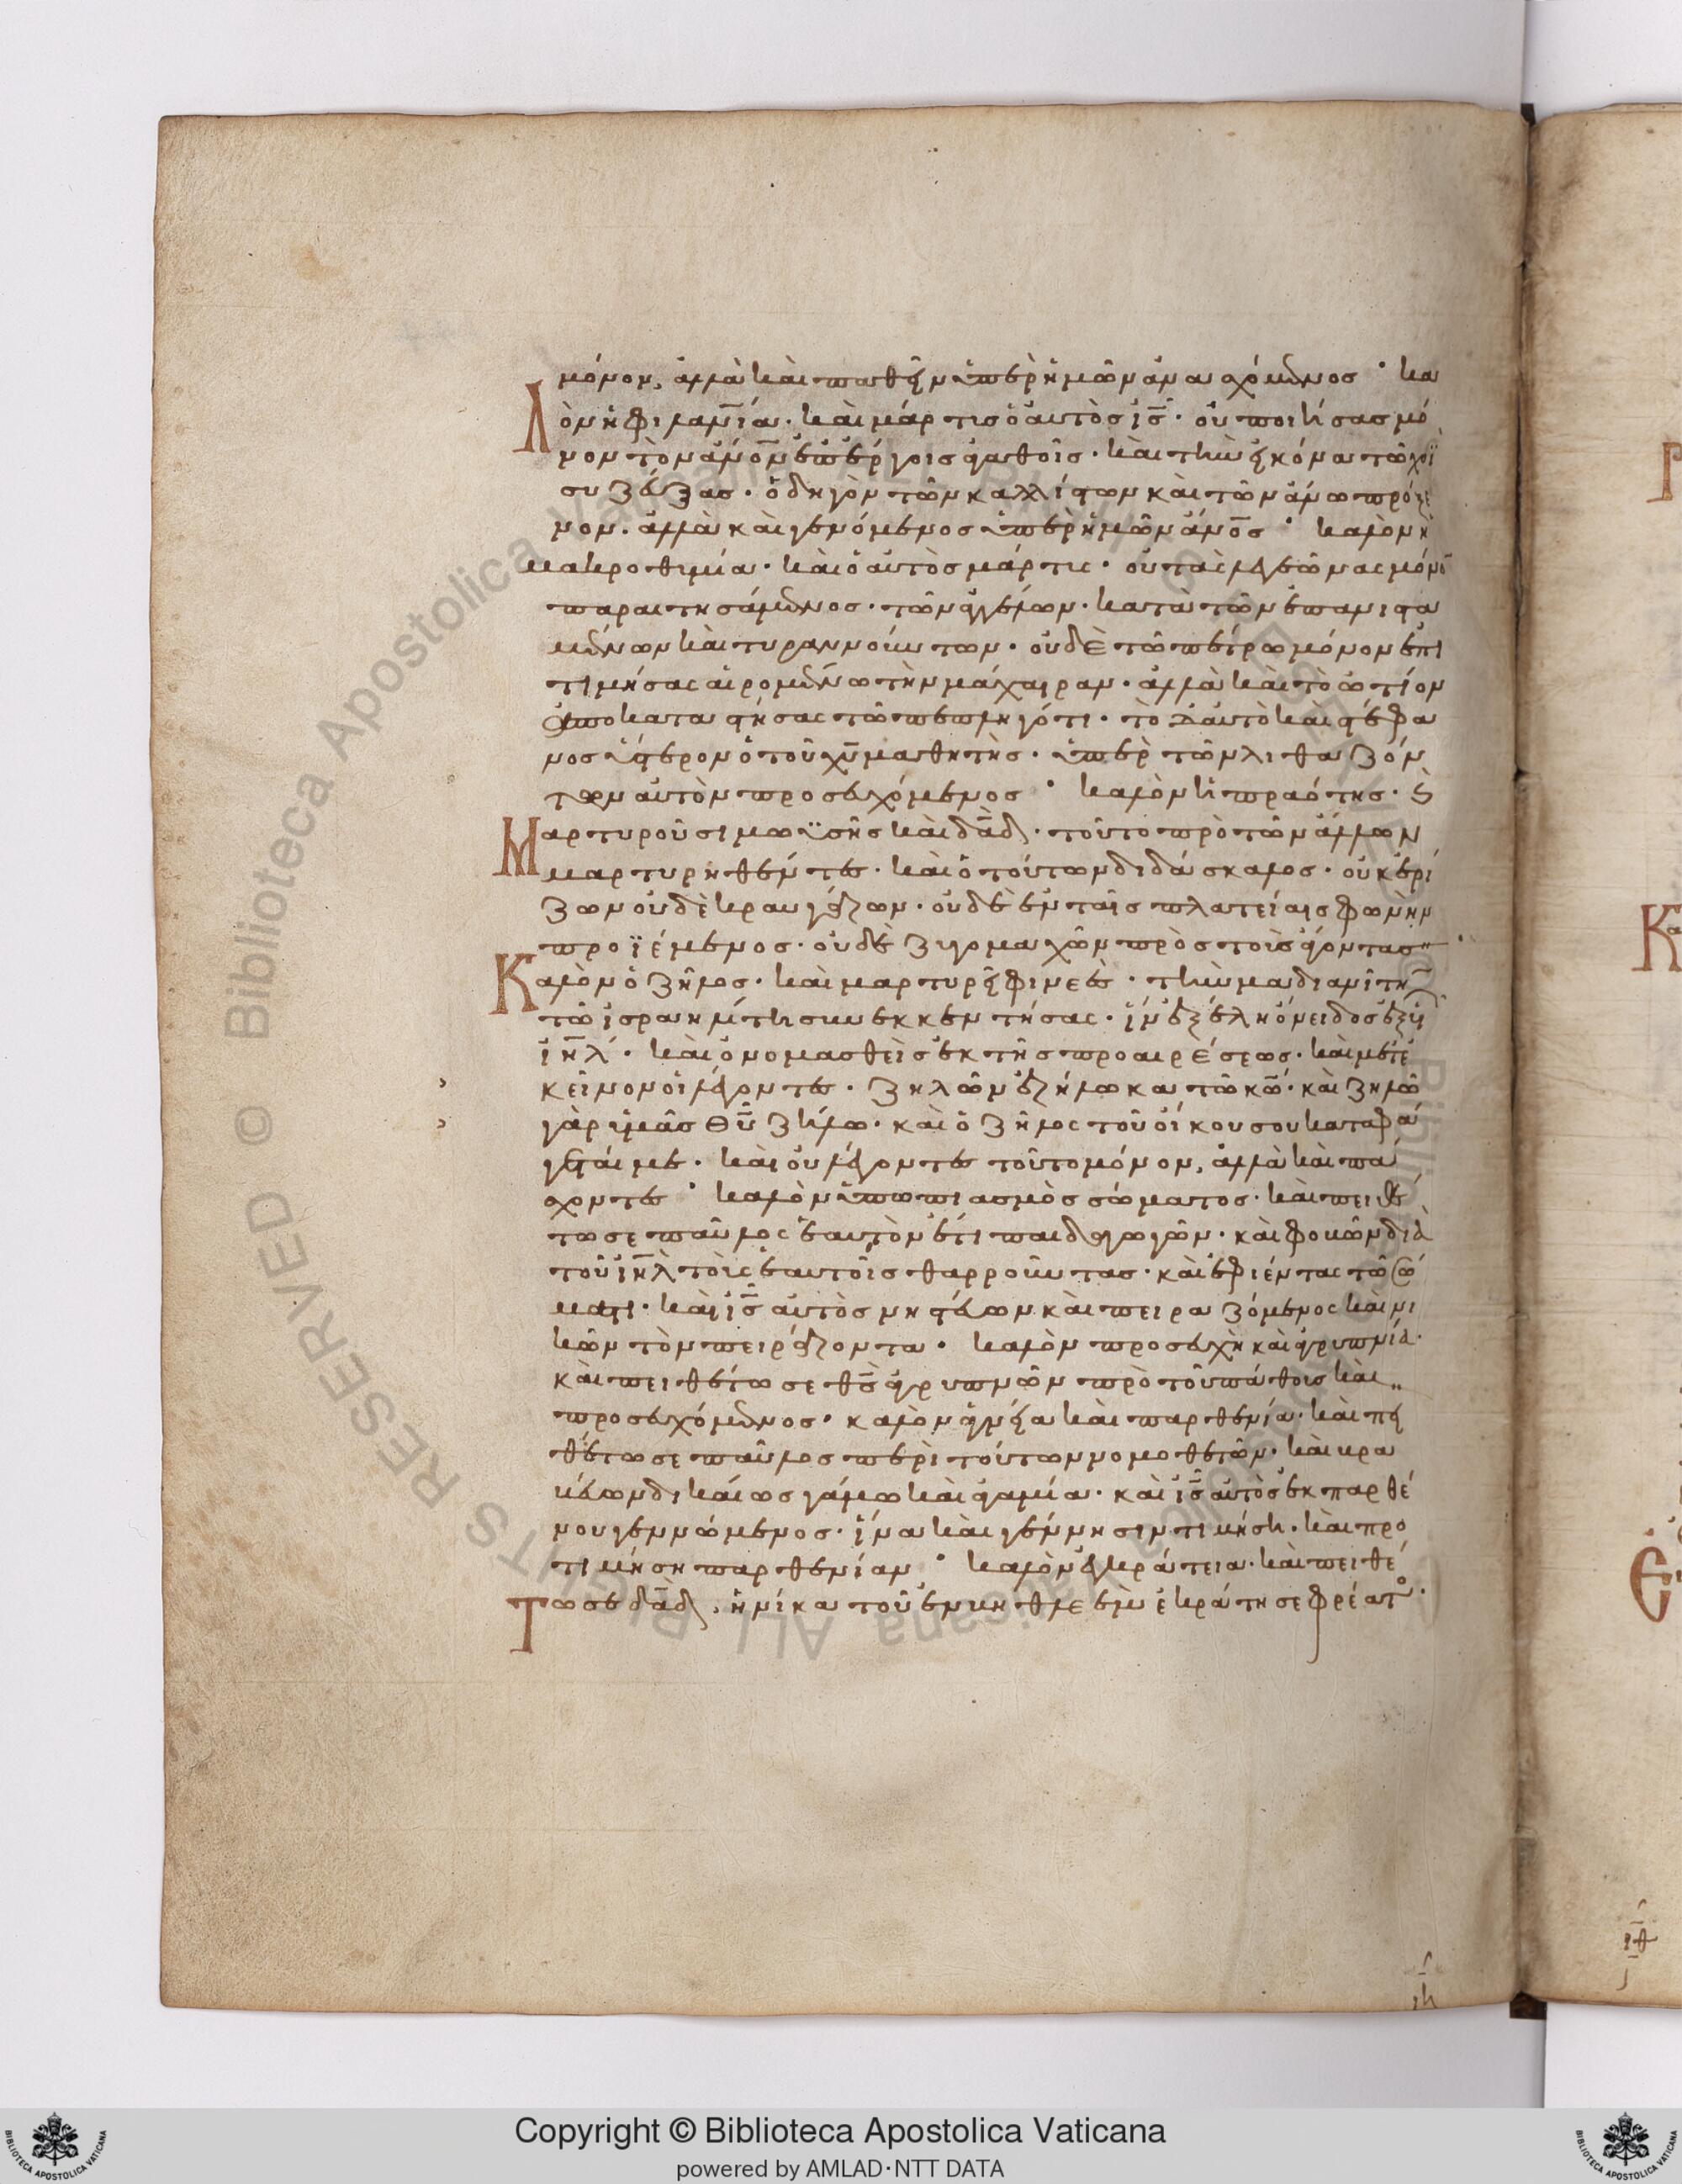 μόνον, ἀλλὰ καὶ παθεῖν ὑπὲρ ἡμῶν ἀνασχόμενος · κα
λὸν ἡ φιλανία · καὶ μάρτις ὁ αὐτὸς ις · οὐ ποιήσας μό
νον τὸν ἄνον ἐπ' ἔργοις ἀγαθοῖς · καὶ τὴν εἰκόνα τῶ χοῒ
συζεύξας · ὁδηγὸν τῶν καλλίστων καὶ τῶν ἄνω πρόξε
νον · ἀλλὰ καὶ γενόμενος ὑπὲρ ἡμῶν ἄνος · καλὸν ἡ
μακροθυμία · καὶ ὁ αὐτὸς μάρτυς · οὐ τὰς λεγεῶνας μόνο
παραιτησάμενος · τῶν ἀγγέλων · κατὰ τῶν ἐπανιστα
μένων καὶ τυραννούντων · οὐδὲ τῶ πέτρω μόνον ἐπι
τιμήσας αἰρομένω τὴν μάχαιραν · ἀλλὰ καὶ τὸ ὠτίον
ἀποκαταστήσας τῶ πεπληγότι · τὸ δ' αὐτὸ καὶ στέφα
νος ὕστερον ὁ τοῦ χυ μαθητὴς · ὑπὲρ τῶν λιθαζόν
των αὐτὸν προσευχόμενος · καλὸν ἡ πραότης · ὡ
Μαρτυροῦσι μωϋσῆς καὶ δαδ · τοῦτο πρὸ τῶν ἄλλων
μαρτυρηθέντες · καὶ ὁ τούτων διδάσκαλος · οὐκ ἐρί
ζων οὐδὲ κραυγάζων · οὐδὲ ἐν ταῖς πλατείαις φωνὴν
προϊέμενος · οὐδὲ ζυγομαχῶν πρὸς τοὺς ἄγοντας ·
Καλὸν ὁ ζῆλος · καὶ μαρτυρεῖ φινεὲς · τὴν μαδιανῖτιν
τῶ ἰσραηλίτη συνεκκεντήσας · ἵν' ἐξέλη ὄνειδος ἐξ υἱ
ιηλ · καὶ ὀνομασθεὶς ἐκ τῆς προαιρέσεως · καὶ μετ' ἐ
κεῖνον οἱ λέγοντες · ζηλῶν ἐζήλωκα τῶ κω · καὶ ζηλῶ
γὰρ ὑμᾶς θυ ζήλω · καὶ ὁ ζῆλος τοῦ οἴκου σου καταφά
γεταί με · καὶ οὐ λέγοντες τοῦτο μόνον, ἀλλὰ καὶ πά
σχοντες · καλὸν ὑπωπιασμὸς σώματος · καὶ πειθέ
τω σε παῦλος ἑαυτὸν ἔτι παιδαγωγῶν · καὶ φοβῶν διὰ
τοῦ ιηλ τοὺς ἑαυτοῖς θαρροῦντας · καὶ ἐφιέντας τῶ σώ
ματι · καὶ ις αὐτὸς νηστεύων καὶ πειραζόμενος καὶ νι
κῶν τὸν πειράζοντα · καλὸν προσευχὴ καὶ ἀγρυπνία ·
καὶ πειθέτω σε θς ἀγρυπνῶν πρὸ τοῦ πάθους καὶ
προσευχόμενος · καλὸν ἁγνεία καὶ παρθενία · καὶ πει
θέτω σε παῦλος περὶ τούτων νομοθετῶν · καὶ βρα
βεύων δικαίως γάμω καὶ ἀγαμία · καὶ ις αὐτὸς ἐκ παρθέ
νου γεννώμενος · ἵνα καὶ γέννησιν τιμήση · καὶ προ
τιμήση παρθενίαν · καλὸν ἐγκράτεια · καὶ πειθέ
Τω σε δαδ, ἡνίκα τοῦ ἐν βηθλεὲμ ἐκράτησε φρέατο ·
ιη